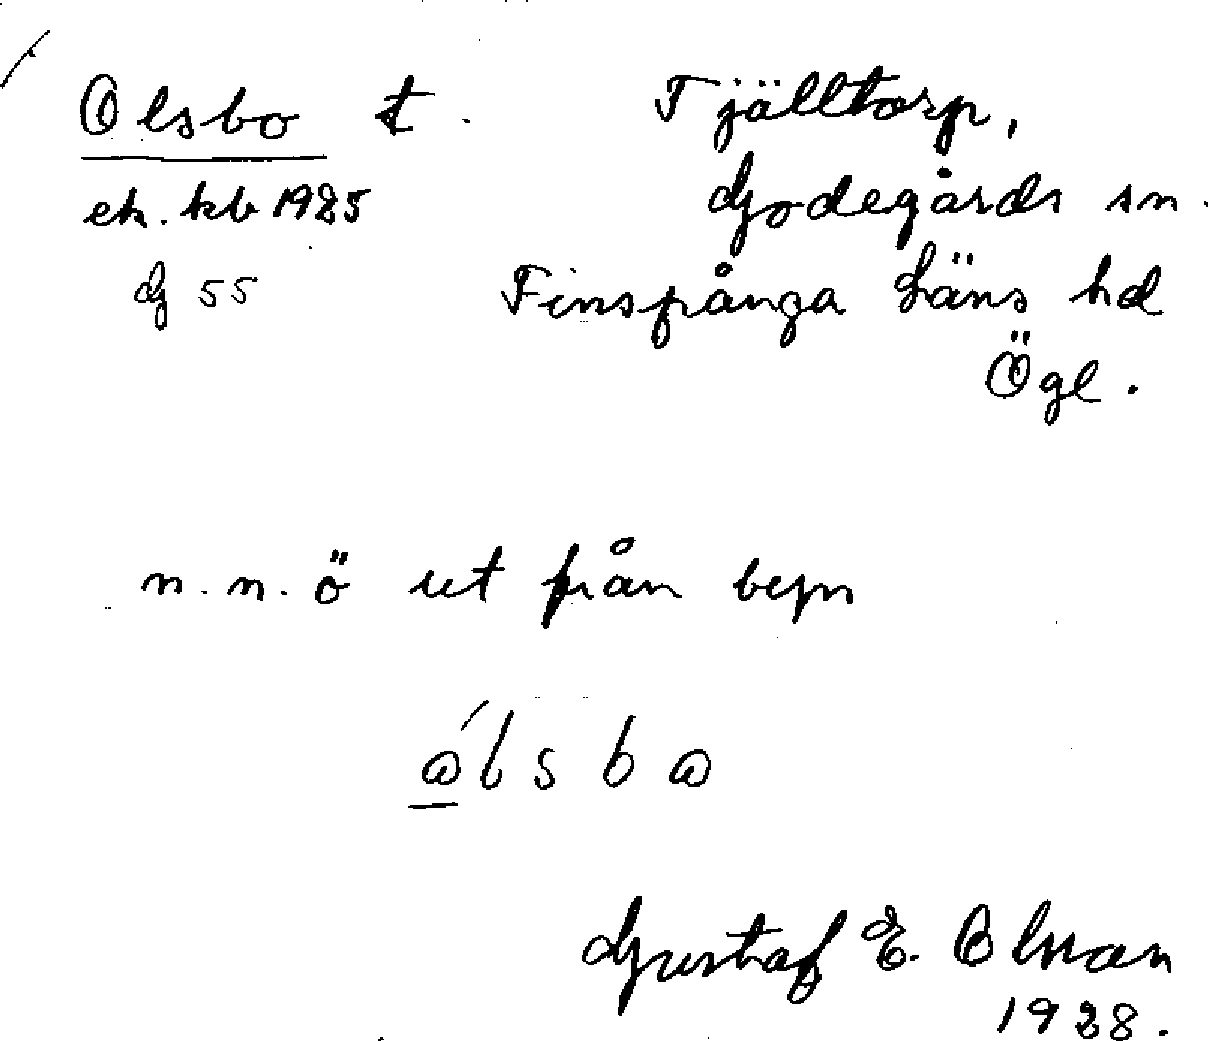 Olsbo t. Tjälltorp,
ek. kb 1925 Godegårds sn.
G 55 Finspånga läns hd
Ögl.
n.n.ö ut från byn
Gustaf E. Olman
1928.